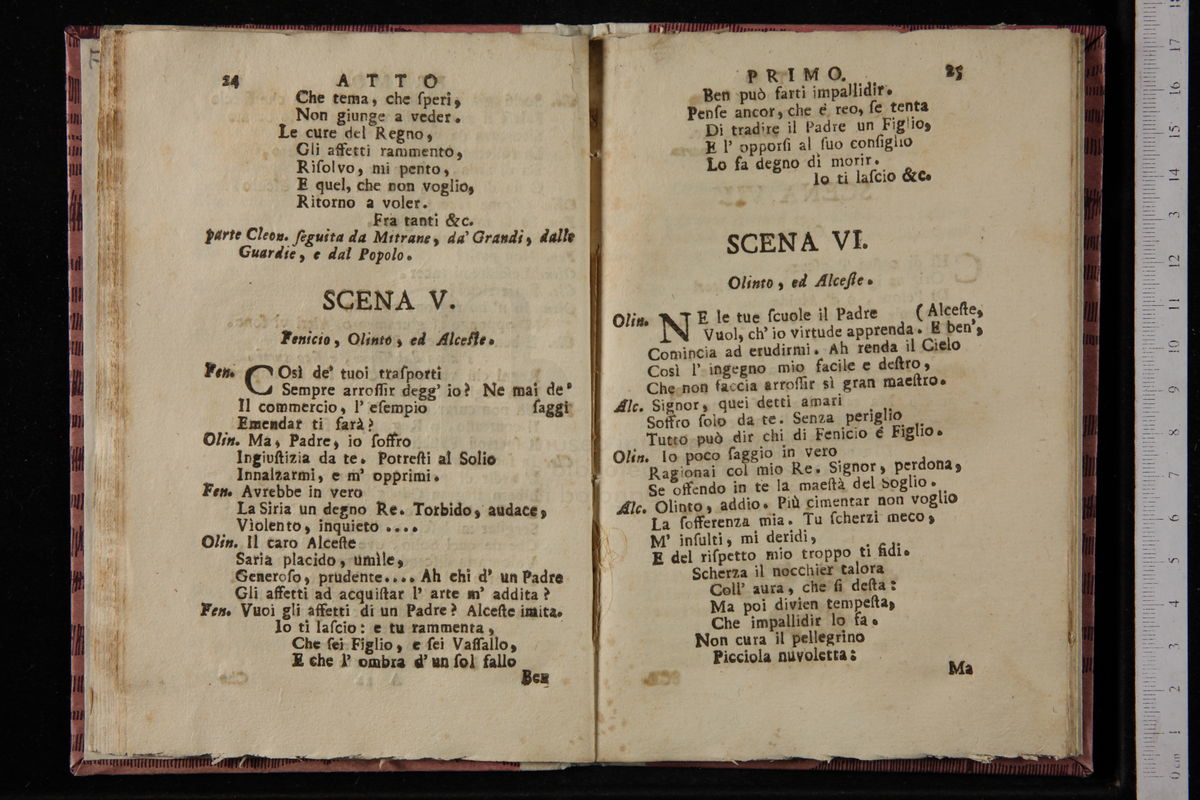 24 ATTO
Che tema, che ſperi,
Non giunge a veder.
Le cure del Regno,
Gli affetti rammento,
Riſolvo, mi pento,
E quel, che non voglio,
Ritorno a voler.
Fra tanti &c.
parte Cleon. ſeguita da Mitrane, da' Grandi, dalle
Guardie, e dal Popolo.
SCENA V.
Fenicio, Olinto, ed Alceſte.
Fen. COsì de' tuoi traſporti
Sempre arroſſir degg' io? Ne mai de'
Il commercio, l' eſempio ſaggi
Emendar ti farà?
Olin. Ma, Padre, io ſoffro
Ingiuſtizia da te. Potreſti al Solio
Innalzarmi, e m' opprimi.
Fen. Avrebbe in vero
La Siria un degno Re. Torbido, audace,
Violento, inquieto ....
Olin. Il caro Alceſte
Saria placido, umìle,
Generoſo, prudente.... Ah chi d' un Padre
Gli affetti ad acquiſtar l' arte m' addita?
Fen. Vuoi gli affetti di un Padre? Alceſte imita.
Io ti laſcio: e tu rammenta,
Che ſei Figlio, e ſei Vaſſallo,
E che l' ombra d' un ſol fallo
Ben
PRIMO. 25
Ben può farti impallidir.
Penſe ancor, che é reo, ſe tenta
Di tradire il Padre un Figlio,
E l' opporſi al ſuo conſiglio
Lo fa degno di morir.
Io ti laſcio &c.
SCENA VI.
Olinto, ed Alceſte.
Olin. NE le tue ſcuole il Padre (Alceſte,
Vuol, ch' io virtude apprenda. E ben',
Comincia ad erudirmi. Ah renda il Cielo
Così l' ingegno mio facile e deſtro,
Che non faccia arroſſir sì gran maeſtro.
Alc. Signor, quei detti amari
Soffro ſolo da te. Senza periglio
Tutto può dir chi di Fenicio é Figlio.
Olin. Io poco ſaggio in vero
Ragionai col mio Re. Signor, perdona,
Se offendo in te la maeſtà del Soglio.
Alc. Olinto, addio. Più cimentar non voglio
La ſofferenza mia. Tu ſcherzi meco,
M' inſulti, mi deridi,
E del riſpetto mio troppo ti fidi.
Scherza il nocchier talora
Coll' aura, che ſi deſta:
Ma poi divien tempeſta,
Che impallidir lo fa.
Non cura il pellegrino
Picciola nuvoletta:
Ma